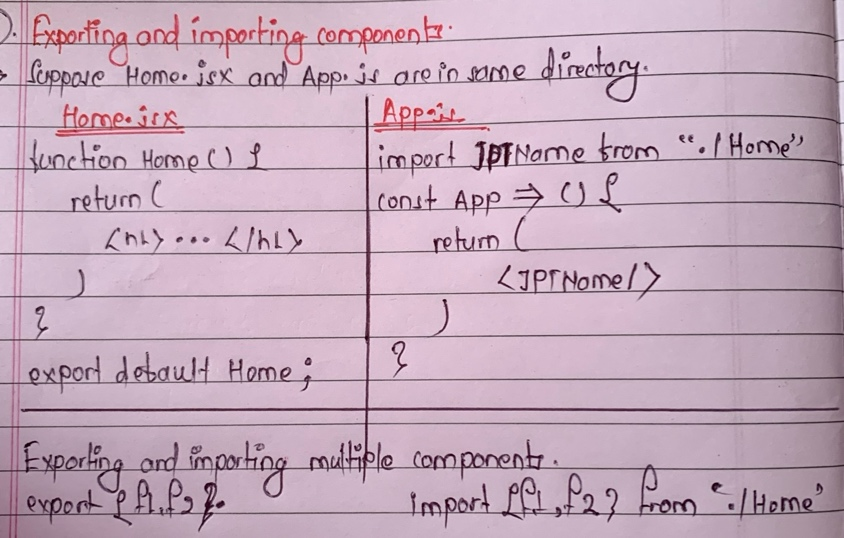 ). Exporting and importing components.
Suppose Home.jsx and App.js are in same directory.
Home.jsx
function Home() {
return (
<h1> ... </h1>
)
}
export default Home;
App.js
import JPTName from "./Home"
const App => () {
return (
<JPTName/>
)
}
Exporting and importing multiple components.
export {f1, f2}.
import {f1, f2} from "./Home"